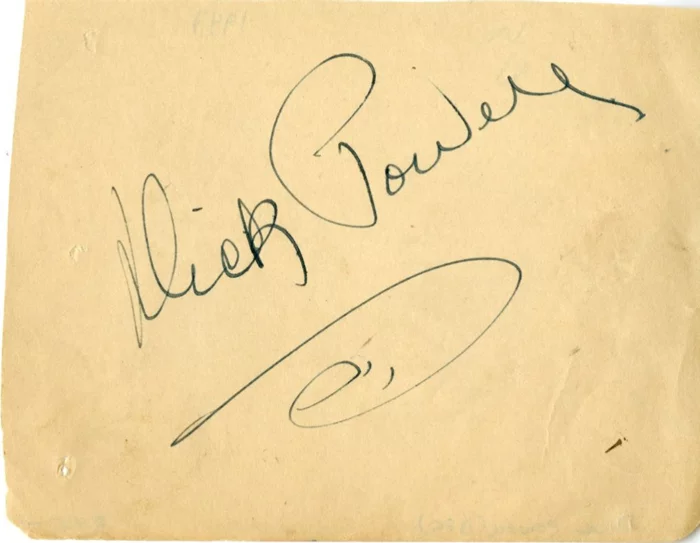 Dick Powell